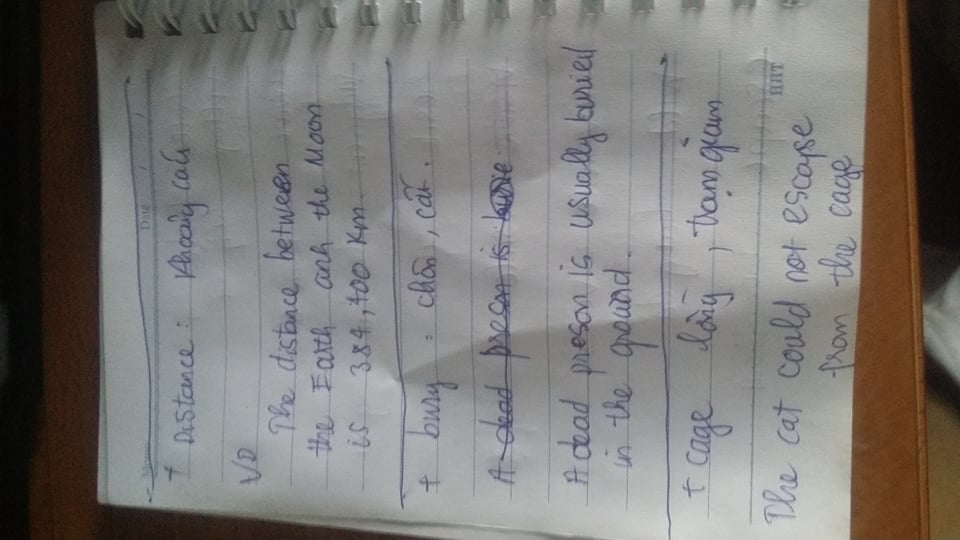 Date
+ Distance: Khoảng cách
V/D
The distance between
the Earth anh the Moon
is 384,400 km.
+ bury : chôn, cất.
A dead preson is
A dead preson is usually buried
in the ground.
+ cage lồng, trạm giam
HHT
The cat could not escape
from the cage